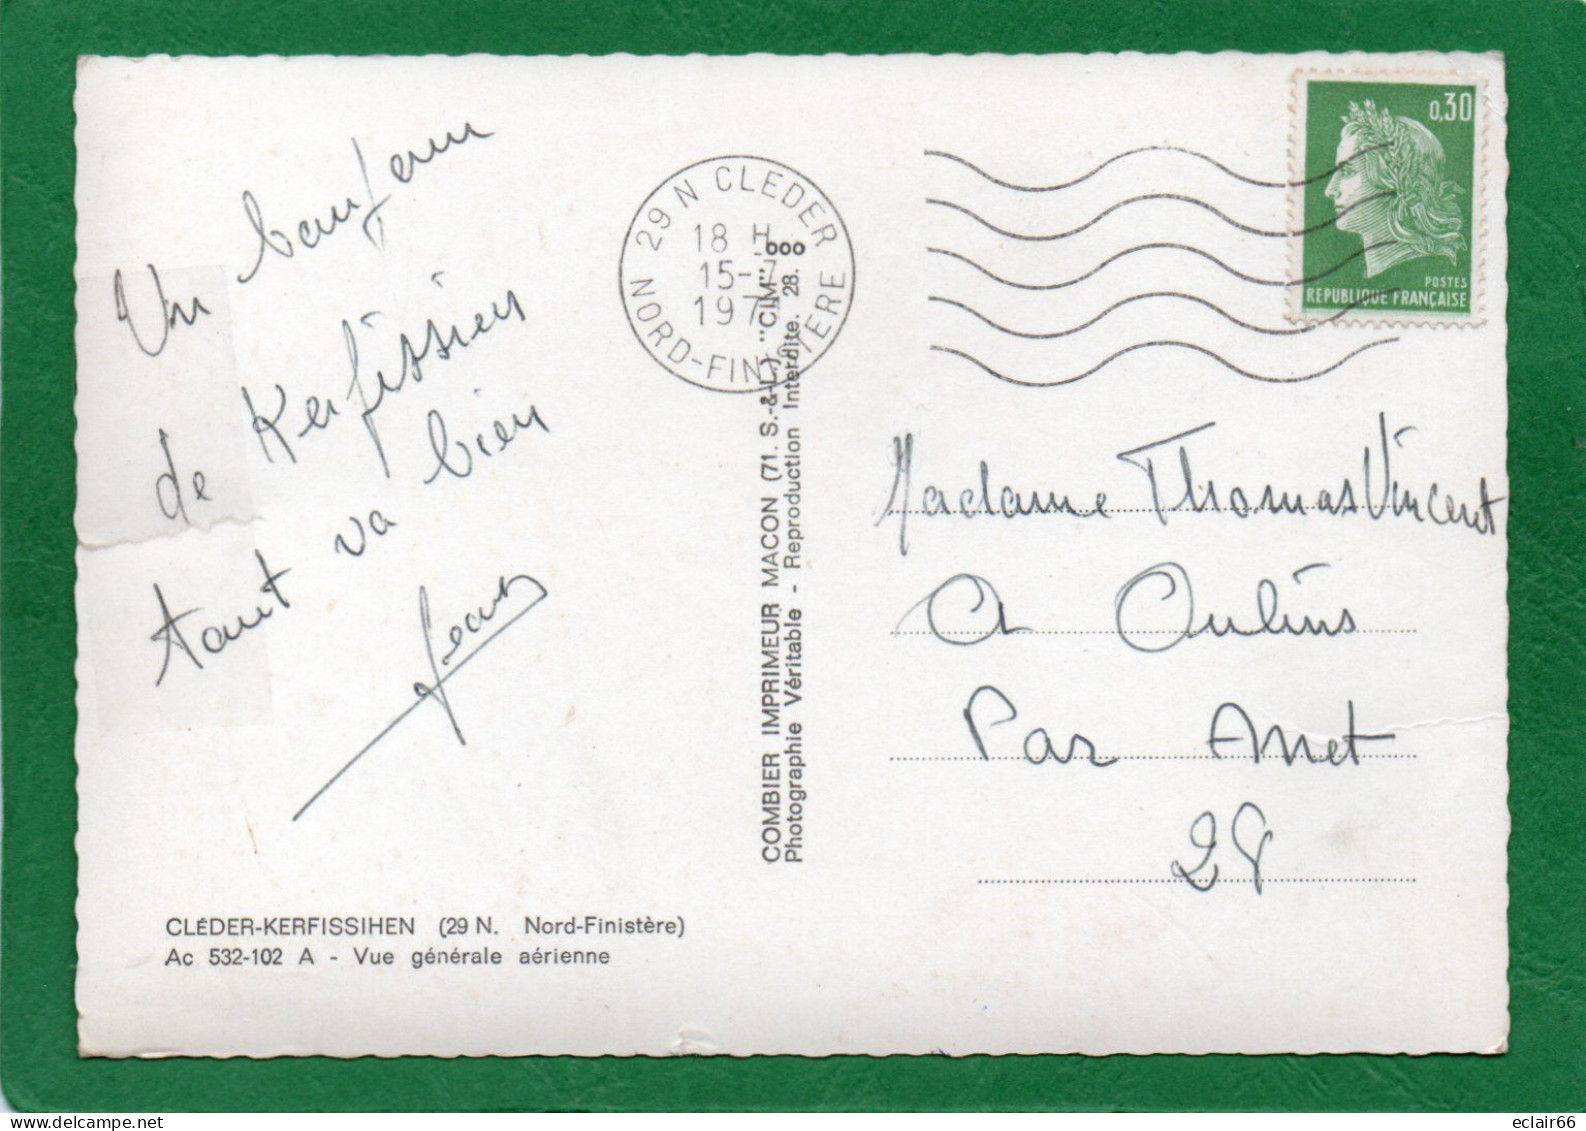 Un bonjour
de Kerfissien
tout va bien
Jean
CLÉDER-KERFISSIHEN (29 N. Nord-Finistère)
Ac 532-102 A - Vue générale aérienne
COMBIER IMPRIMEUR MACON (71. S.-&-L.) "CIM"
Photographie Véritable - Reproduction Interdite. 28.
29 N CLEDER
18 H
15-7
197
NORD-FINISTERE
0,30
POSTES
REPUBLIQUE FRANÇAISE
Madame Thomas Vincent
A Oulins
Par Anet
28
eclair66